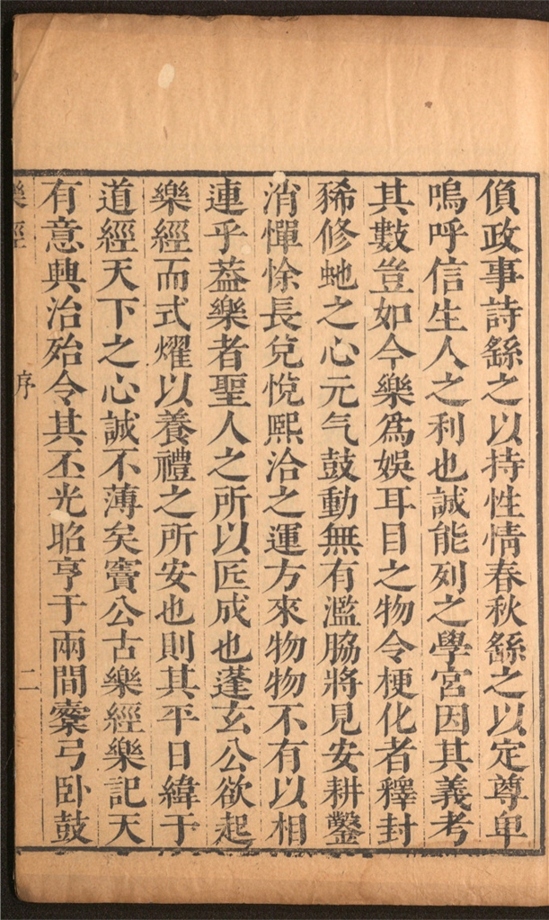 偵政事詩繇之以持性情春秋繇之以定尊卑
嗚呼信生人之利也誠能列之學宮因其義考
其數豈如今樂為娛耳目之物令梗化者釋封
豨修虵之心元气鼓動無有濫脇將見安耕鑿
消憚悇長兌悅熙洽之運方來物物不有以相
連乎葢樂者聖人之所以匠成也蓬玄公欲起
樂經而式燿以養禮之所安也則其平日緯于
道經天下之心誠不薄矣竇公古樂經樂記天
有意興治殆令其丕光昭亨于兩間櫜弓卧鼓
樂經 序 二